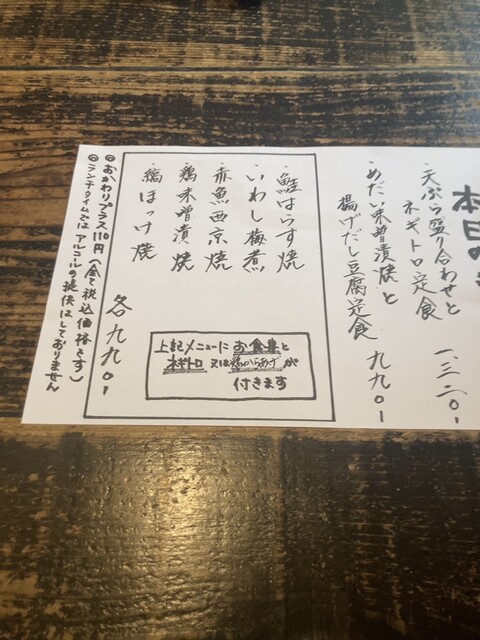 本日の
・天ぷら盛り合わせと
ネギトロ定食
一、三二〇、-
・めだい味噌漬焼と
揚げだし豆腐定食 九九〇、-
・鮭はらす焼
・いわし梅煮
・赤魚西京焼
・鶏味噌漬焼
・縞ほっけ焼
各九九〇、-
上記メニューにお食事と
ネギトロ 又は
付きます
◎おかわりプラス110円(全て税込価格です)
◎ランチタイムではアルコールの提供はしておりません